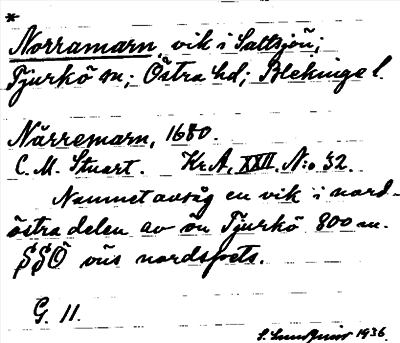 *
Norramarn, vik i Saltsjön;
Tjurkö sn; Östra hd; Blekinge l.
Närremarn, 1680.
C. M. Stuart. Kr.A. XXII. N:o 32.
Namnet avsåg en vik i nord-
östra delen av ön Tjurkö 800 m.
SSÖ öns nordspets.
G. 11.
1936.